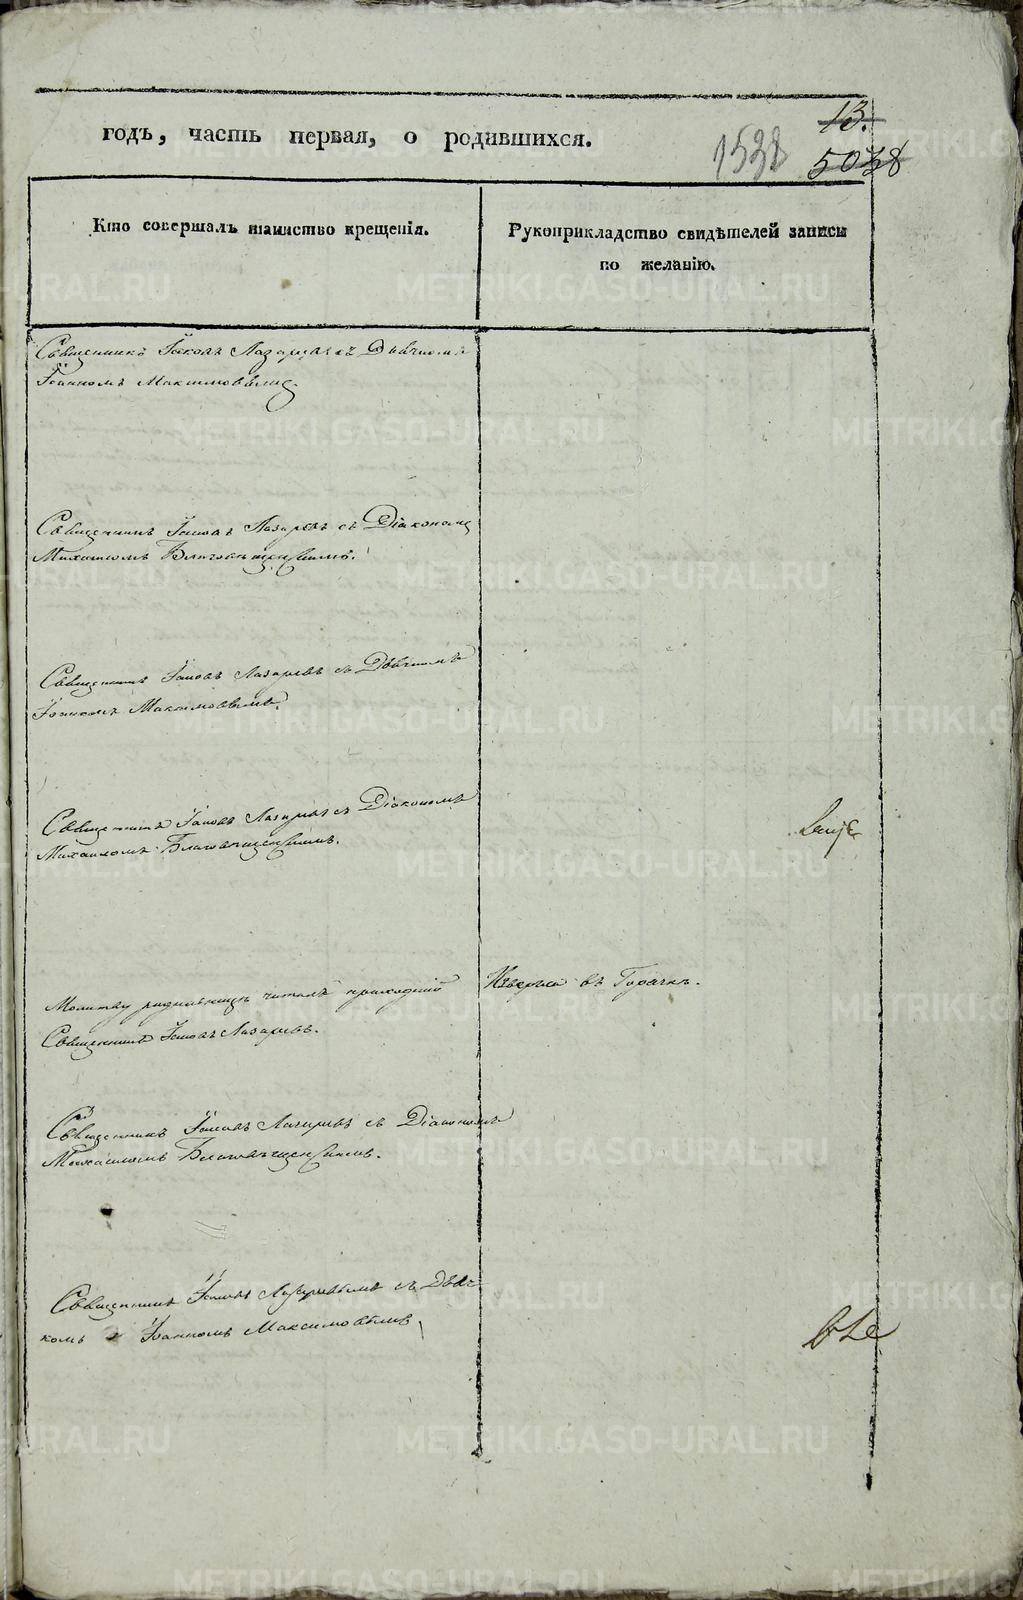 годъ, часть первая, о родившихся.
13.
1538
5038
Кто совершалъ таинство крещенія.
Рукоприкладство свидѣтелей записи
по желанію.
Священникъ Іаковъ Лазаревъ съ Дьячкомъ
Іоанномъ Максимовымъ.
Священникъ Іаковъ Лазаревъ съ Діакономъ
Михаиломъ Благовѣщенскимъ.
Священникъ Іаковъ Лазаревъ съ Дьячкомъ
Іоанномъ Максимовымъ.
Священникъ Іаковъ Лазаревъ съ Діакономъ
Михаиломъ Благовѣщенскимъ.
Молитву читалъ приходскій
Священникъ Іаковъ Лазаревъ.
въ
Священникъ Іаковъ Лазаревъ съ Діакономъ
Михаиломъ Благовѣщенскимъ.
Священникъ Іаковъ Лазаревымъ съ Дьяч-
комъ Іоанномъ Максимовымъ.
METRIKI.GASO-URAL.RU